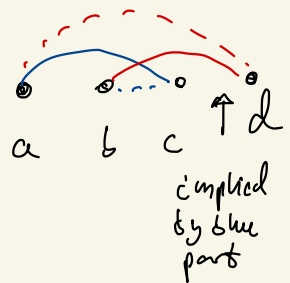 a b c d
implied
by blue
part